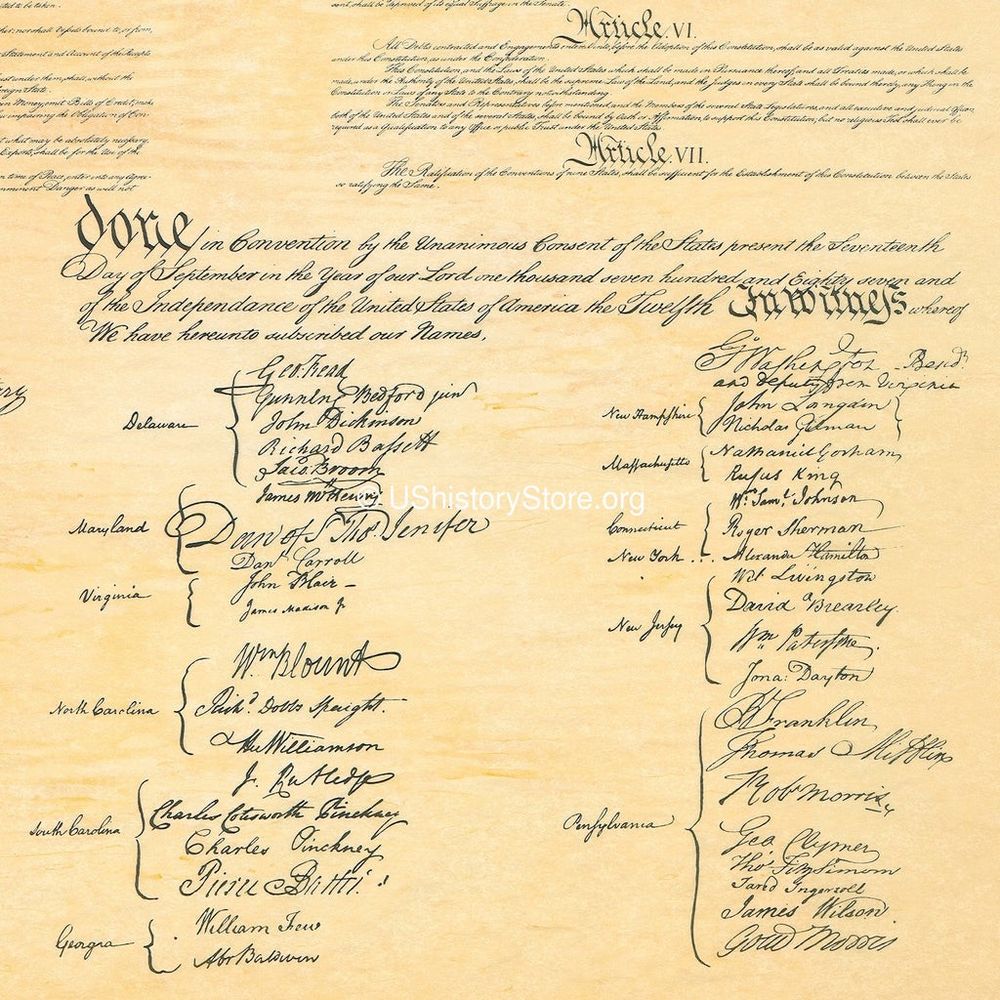 ated to be taken.
sent, shall be deprived of its equal Suffrage in the Senate.
Article. VI.
her: nor shall Vessels bound to, or from,
All Debts contracted and Engagements entered into, before the Adoption of this Constitution, shall be as valid against the United States
Statement and Account of the Receipts
under this Constitution, as under the Confederation.
This Constitution, and the Laws of the United States which shall be made in Pursuance thereof; and all Treaties made, or which shall be
made, under the Authority of the United States, shall be the supreme Law of the Land; and the Judges in every State shall be bound thereby, any Thing in the
Constitution or Laws of any State to the Contrary notwithstanding.
The Senators and Representatives before mentioned, and the Members of the several State Legislatures, and all executive and judicial Officers,
both of the United States and of the several States, shall be bound by Oath or Affirmation, to support this Constitution; but no religious Test shall ever be
required as a Qualification to any Office or public Trust under the United States.
under them, shall, without the
reign State.
in Money; emit Bills of Credit; make
impairing the Obligation of Con-
what may be absolutely necessary
Exports, shall be for the Use of the
in time of Peace, enter into any Agree-
imminent Danger as will not
Article. VII.
The Ratification of the Conventions of nine States, shall be sufficient for the Establishment of this Constitution between the States
so ratifying the Same.
done in Convention by the Unanimous Consent of the States present the Seventeenth
Day of September in the Year of our Lord one thousand seven hundred and Eighty seven and
of the Independance of the United States of America the Twelfth In Witness whereof
We have hereunto subscribed our Names,
Delaware
Geo: Read
Gunning Bedford jun
John Dickinson
Richard Bassett
Jaco: Broom
Maryland
James McHenry
Dan of St Thos. Jenifer
Danl Carroll
Virginia
John Blair –
James Madison Jr
North Carolina
Wm Blount
Richd. Dobbs Spaight.
Hu Williamson
South Carolina
J. Rutledge
Charles Cotesworth Pinckney
Charles Pinckney
Pierce Butler.
Georgia
William Few
Abr Baldwin
Go Washington Presidt
and deputy from Virginia
New Hampshire
John Langdon
Nicholas Gilman
Massachusetts
Nathaniel Gorham
Rufus King
Connecticut
Wm. Saml. Johnson
Roger Sherman
New York . . .
Alexander Hamilton
New Jersey
Wil: Livingston
David Brearley.
Wm Paterson.
Jona: Dayton
Pensylvania
B Franklin
Thomas Mifflin
Robt Morris
Geo. Clymer
Thos. FitzSimons
Jared Ingersoll
James Wilson.
Gouv Morris
UShistoryStore.org